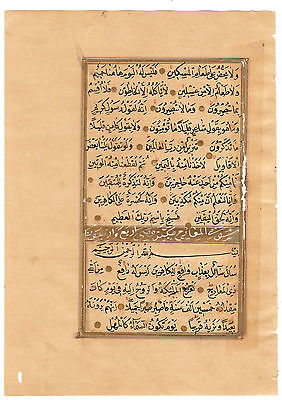 ولا يحض على طعام المسكين فليس له اليوم ههنا حميم
ولا طعام الا من غسلين لا ياكله الا الخاطؤن فلا اقسم
بما تبصرون وما لا تبصرون انه لقول رسول كريم
وما هو بقول شاعر قليلا ما تؤمنون ولا بقول كاهن قليلا
ما تذكرون تنزيل من رب العالمين ولو تقول علينا بعض
الاقاويل لاخذنا منه باليمين ثم لقطعنا منه الوتين
فما منكم من احد عنه حاجزين وانه لتذكرة للمتقين
وانا لنعلم ان منكم مكذبين وانه لحسرة على الكافرين
وانه لحق اليقين فسبح باسم ربك العظيم
سورة المعارج مكية اربع واربعون
بسم الله الرحمن الرحيم
سال سائل بعذاب واقع للكافرين ليس له دافع من الله
ذي المعارج تعرج الملائكة والروح اليه في يوم كان
مقداره خمسين الف سنة فاصبر صبرا جميلا انهم يرونه
بعيدا ونريه قريبا يوم تكون السماء كالمهل